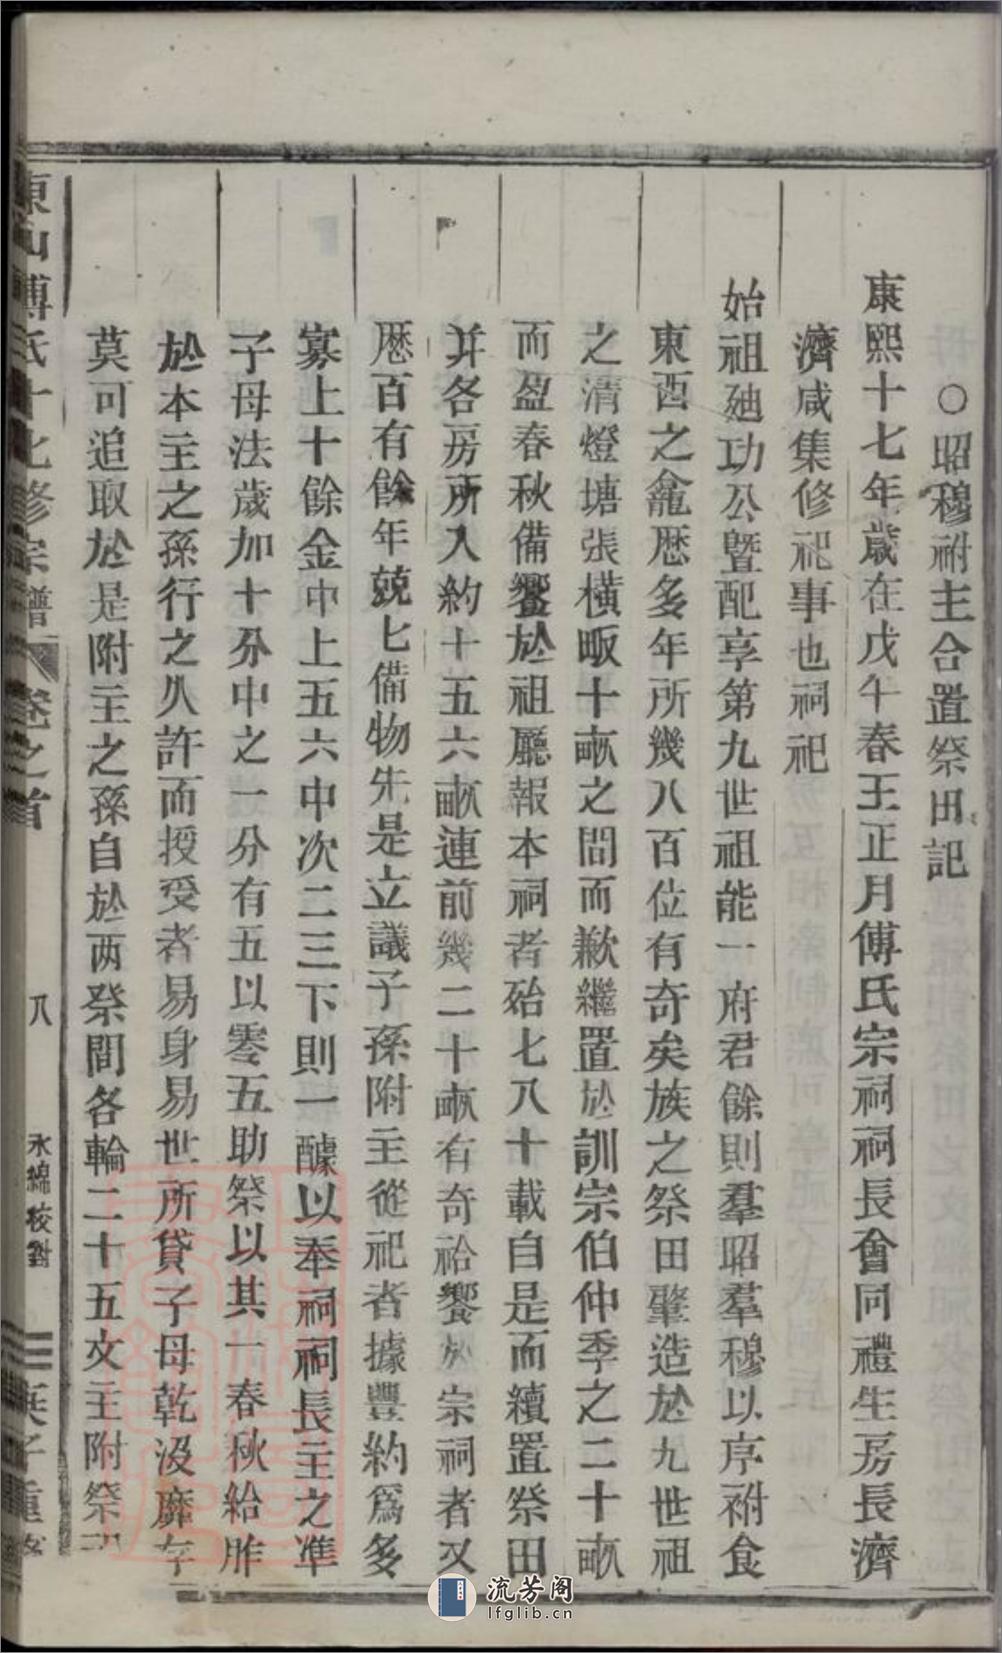 ○昭穆祔主合置祭田記
康熙十七年歲在戊午春王正月傅氏宗祠祠長會同禮生房長濟
濟咸集修祀事也祠祀
始祖廸功公暨配享第九世祖能一府君餘則羣昭羣穆以序祔食
東西之龕歷多年所幾八百位有奇矣族之祭田肇造於九世祖
之清燈塘張橫畈十畝之間而歉繼置於訓宗伯仲季之二十畝
而盈春秋備饗於祖廳報本祠者殆七八十載自是而續置祭田
并各房所入約十五六畝連前幾二十畝有奇祫饗於宗祠者又
歷百有餘年兢七備物先是立議子孫附主從祀者據豐約爲多
寡上十餘金中上五六中次二三下則一醵以奉祠祠長主之準
子母法歲加十分中之一分有五以零五助祭以其一春秋給胙
於本主之孫行之久許而授受者易身易世所貸子母乾沒靡存
莫可追取於是附主之孫自於两祭間各輪二十五文主附祭
東山傅氏十七修宗譜 卷之首
八
永綿校對